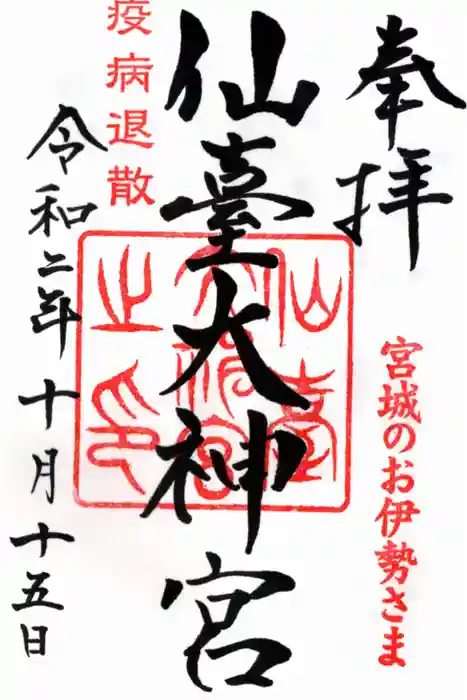 奉拝
宮城のお伊勢さま
仙臺大神宮
仙臺
大神宮
之印
疫病退散
令和二年十月十五日